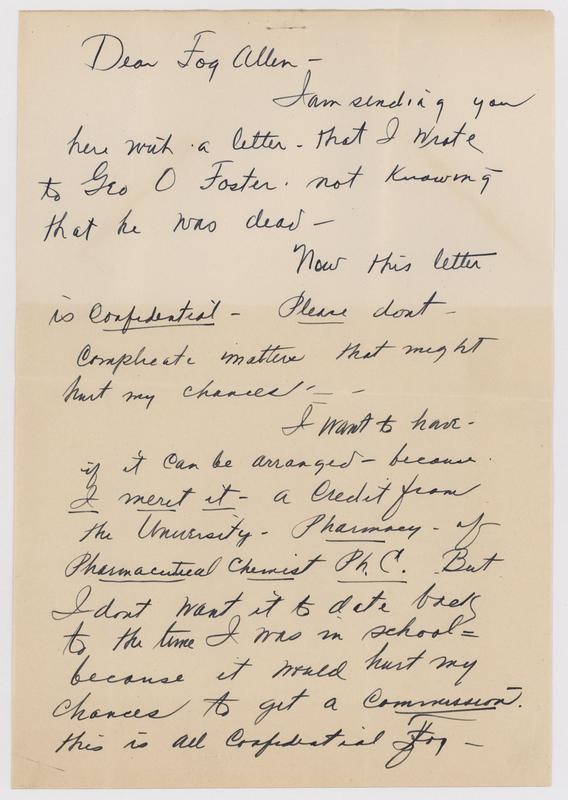 Dear Fog Allen -
I am sending you
here with a letter - that I wrote
to Geo O Foster. not knowing
that he was dead -
Now this letter
is Confidential - Please dont -
Complicate matters that might
hurt my chances - -
I want to have -
if it can be arranged - because
I merit it - a Credit from
the University - Pharmacy - of
Pharmaceutical Chemist Ph. C. But
I dont want it to date back
to the time I was in school =
because it would hurt my
chances to get a Commission.
this is all Confidential Fog -